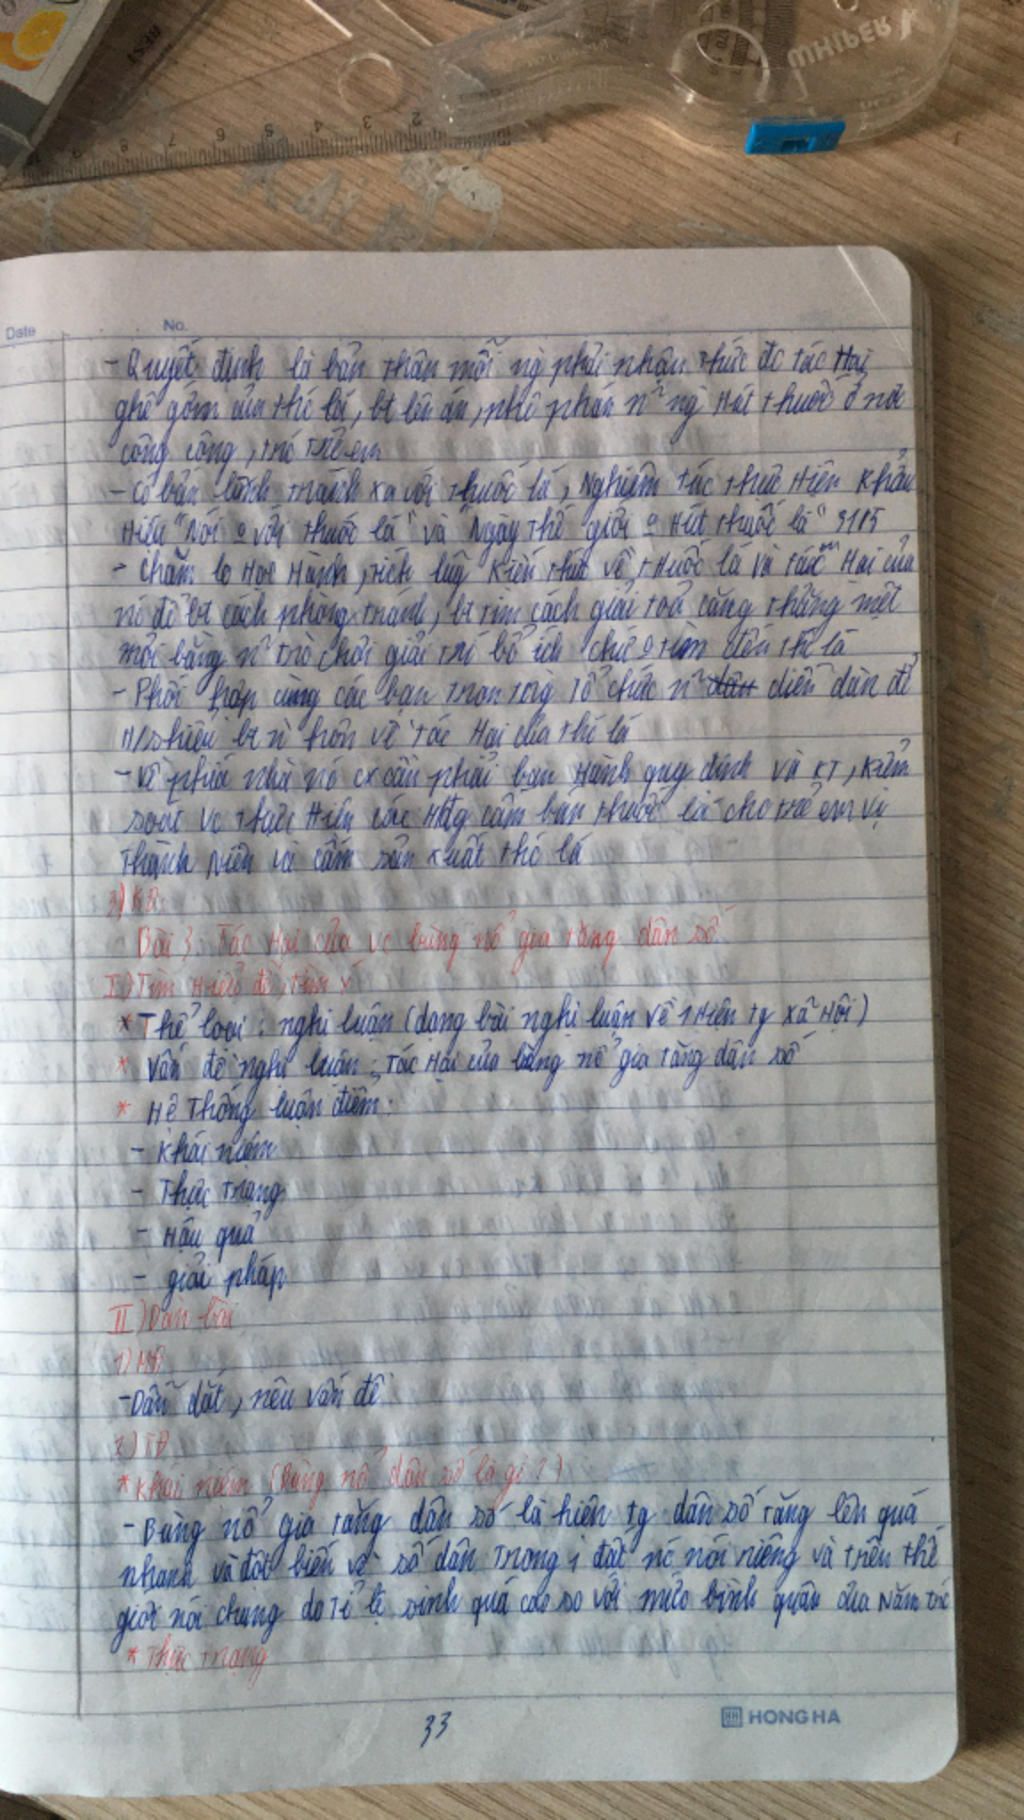 WHIPER
2 3 4 5 6 7 8 9
Date No.
- Quyết định là bản thân mỗi ng phải nhận thức đc tác Hại
ghê gớm của thc lá, bt lên án, phê phán n~ ng Hút thuốc ở nơi
công cộng, trc trẻ em
- Có bản lĩnh tránh xa với thuốc lá, Nghiêm túc thực Hiện khẩu
Hiệu "Nói o với thuốc lá" và "Ngày thế giới o Hút thuốc lá" 31/5
- chăm lo Học Hành, tích lũy kiến thức về thuốc lá và tác Hại của
nó để bt cách phòng tránh, bt tìm cách giải toả căng thẳng mệt
mỏi bằng n~ trò chơi giải trí bổ ích chứ o tìm đến thc lá
- Phối hợp cùng các bạn trong tổ chức n~ diễn đàn để
H/s hiểu bt n` hơn về tác Hại của thc lá
- Về phía nhà nc cx cần phải ban Hành quy định và KT, kiểm
soát vc thực Hiện các cấm bán thuốc lá cho trẻ em vị
thành Niên và cấm sản xuất thc lá
3) KB:
Bài 3: Tác Hại của vc bùng nổ gia tăng dân số
I) Tìm Hiểu đề, tìm ý
* Thể loại: nghị luận (dạng bài nghị luận về 1 Hiện tg xã Hội)
* Vấn đề nghị luận: Tác Hại của bùng nổ gia tăng dân số
* Hệ Thống luận điểm:
- Khái niệm
- Thực trạng
- Hậu quả
- giải pháp
II) Dàn bài
1) MB
- Dẫn dắt, nêu vấn đề
2) TB
* Khái niệm (Bùng nổ dân số là gì?)
- Bùng nổ gia tăng dân số là hiện tg dân số tăng lên quá
nhanh và đột biến về số dân trong 1 đất nc nói riêng và trên thế
giới nói chung do tỉ lệ sinh quá cao so với mức bình quân của Năm trc
* Thực trạng
33
HH HONG HA